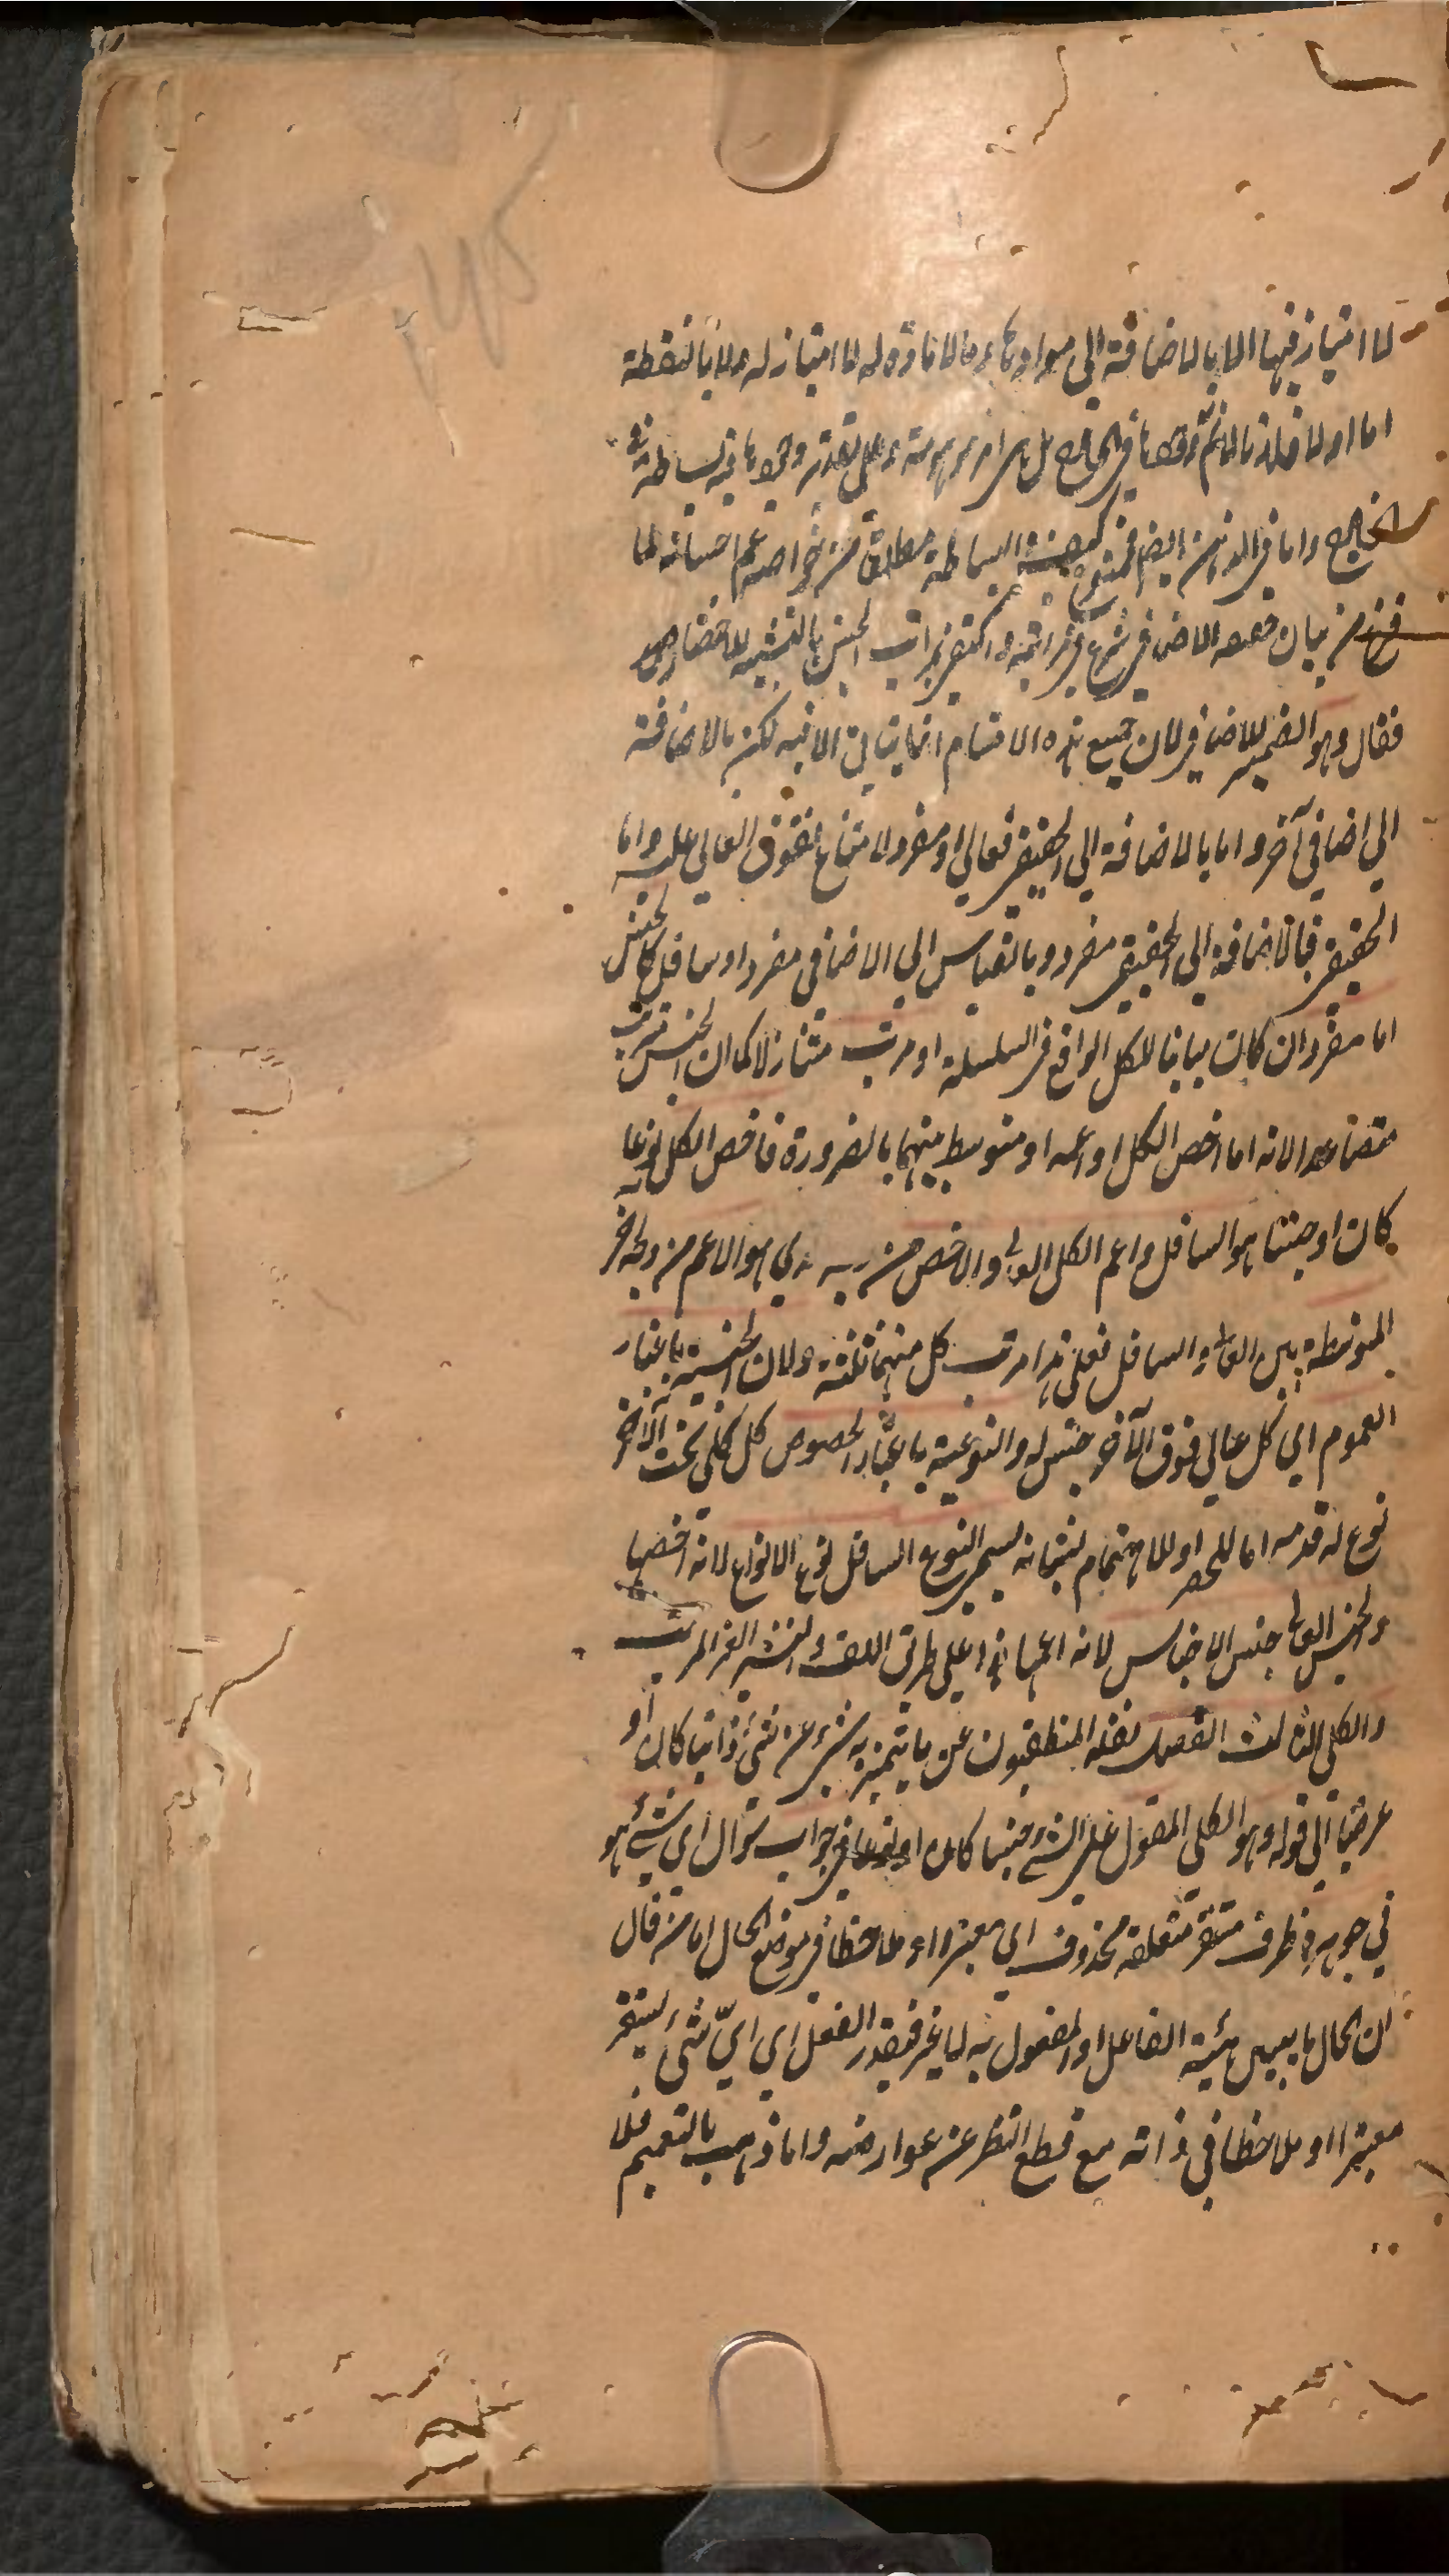 لا امتياز فيها الا بالاضافة الى موادها وما لا مادة له لا امتياز له ولا بالنقطة
اما اولا فلانا لانم وجودها في الخارج بل هى امر موهومة وعلى تقدير وجودها فيه بساطة في
الخارج واما في الذهن ايضا فممنوع كيف البساطة مطلقا من خواصه
فرغ من بيان الاضافي شرع في مراتبه واكتفى بمراتب الجنس بالتشبيه للاختصار
فقال وهو الضمير للاضافي لان جميع هذه الاقسام لكن بالاضافة
الى اضافي آخر واما بالاضافة الى الحقيقي فعالي او مفرد لامتناع تفوق العالي عليه واما
الحقيقي فبالاضافة الى الحقيقي مفرد وبالقياس الى الاضافي مفرد او سافل كالجنس
اما مفرد ان كان مباينا للكل الواقع في السلسلة او مرتب متنازلا كما ان الجنس مترتب
متصاعدا لانه اما اخص الكل او اعمه او متوسط بينهما بالضرورة فاخص الكل نوعا
كان او جنسا هو السافل واعم الكل العالي والاخص من الاعم من
المتوسط بين العالي والسافل فعلى هذا مراتب كل منهما ثلثة ولان الجنسية باعتبار
العموم اي كل عالي فوق الآخر جنس له والنوعية باعتبار الخصوص كل كلي تحت الآخر
نوع له قدمه اما للحصر او للاهتمام بشانه يسمى النوع السافل نوع الانواع لانه اخصها
والجنس العالي جنس الاجناس لانه اعمها هذا على طريق اللف والنشر الغير المرتب
والكلي الثالث الفصل نقله المنطقيون عن ما يتميز به شيء عن شيء ذاتيا كان او
عرضيا الى قوله وهو الكلي المقول على الشيء جنسا كان او نوعا في جواب سؤال اي شيء هو
في جوهره ظرف مستقر متعلقه محذوف اي معتبرا او ملاحظا في موضع الحال اما من قال
ان الحال ما يبين هيئة الفاعل او المفعول به لا غير فيقدر الفعل اي ايّ شيء
معتبرا او ملاحظا في ذاته مع قطع النظر عن عوارضه واما ذهب بالتعميم فلا